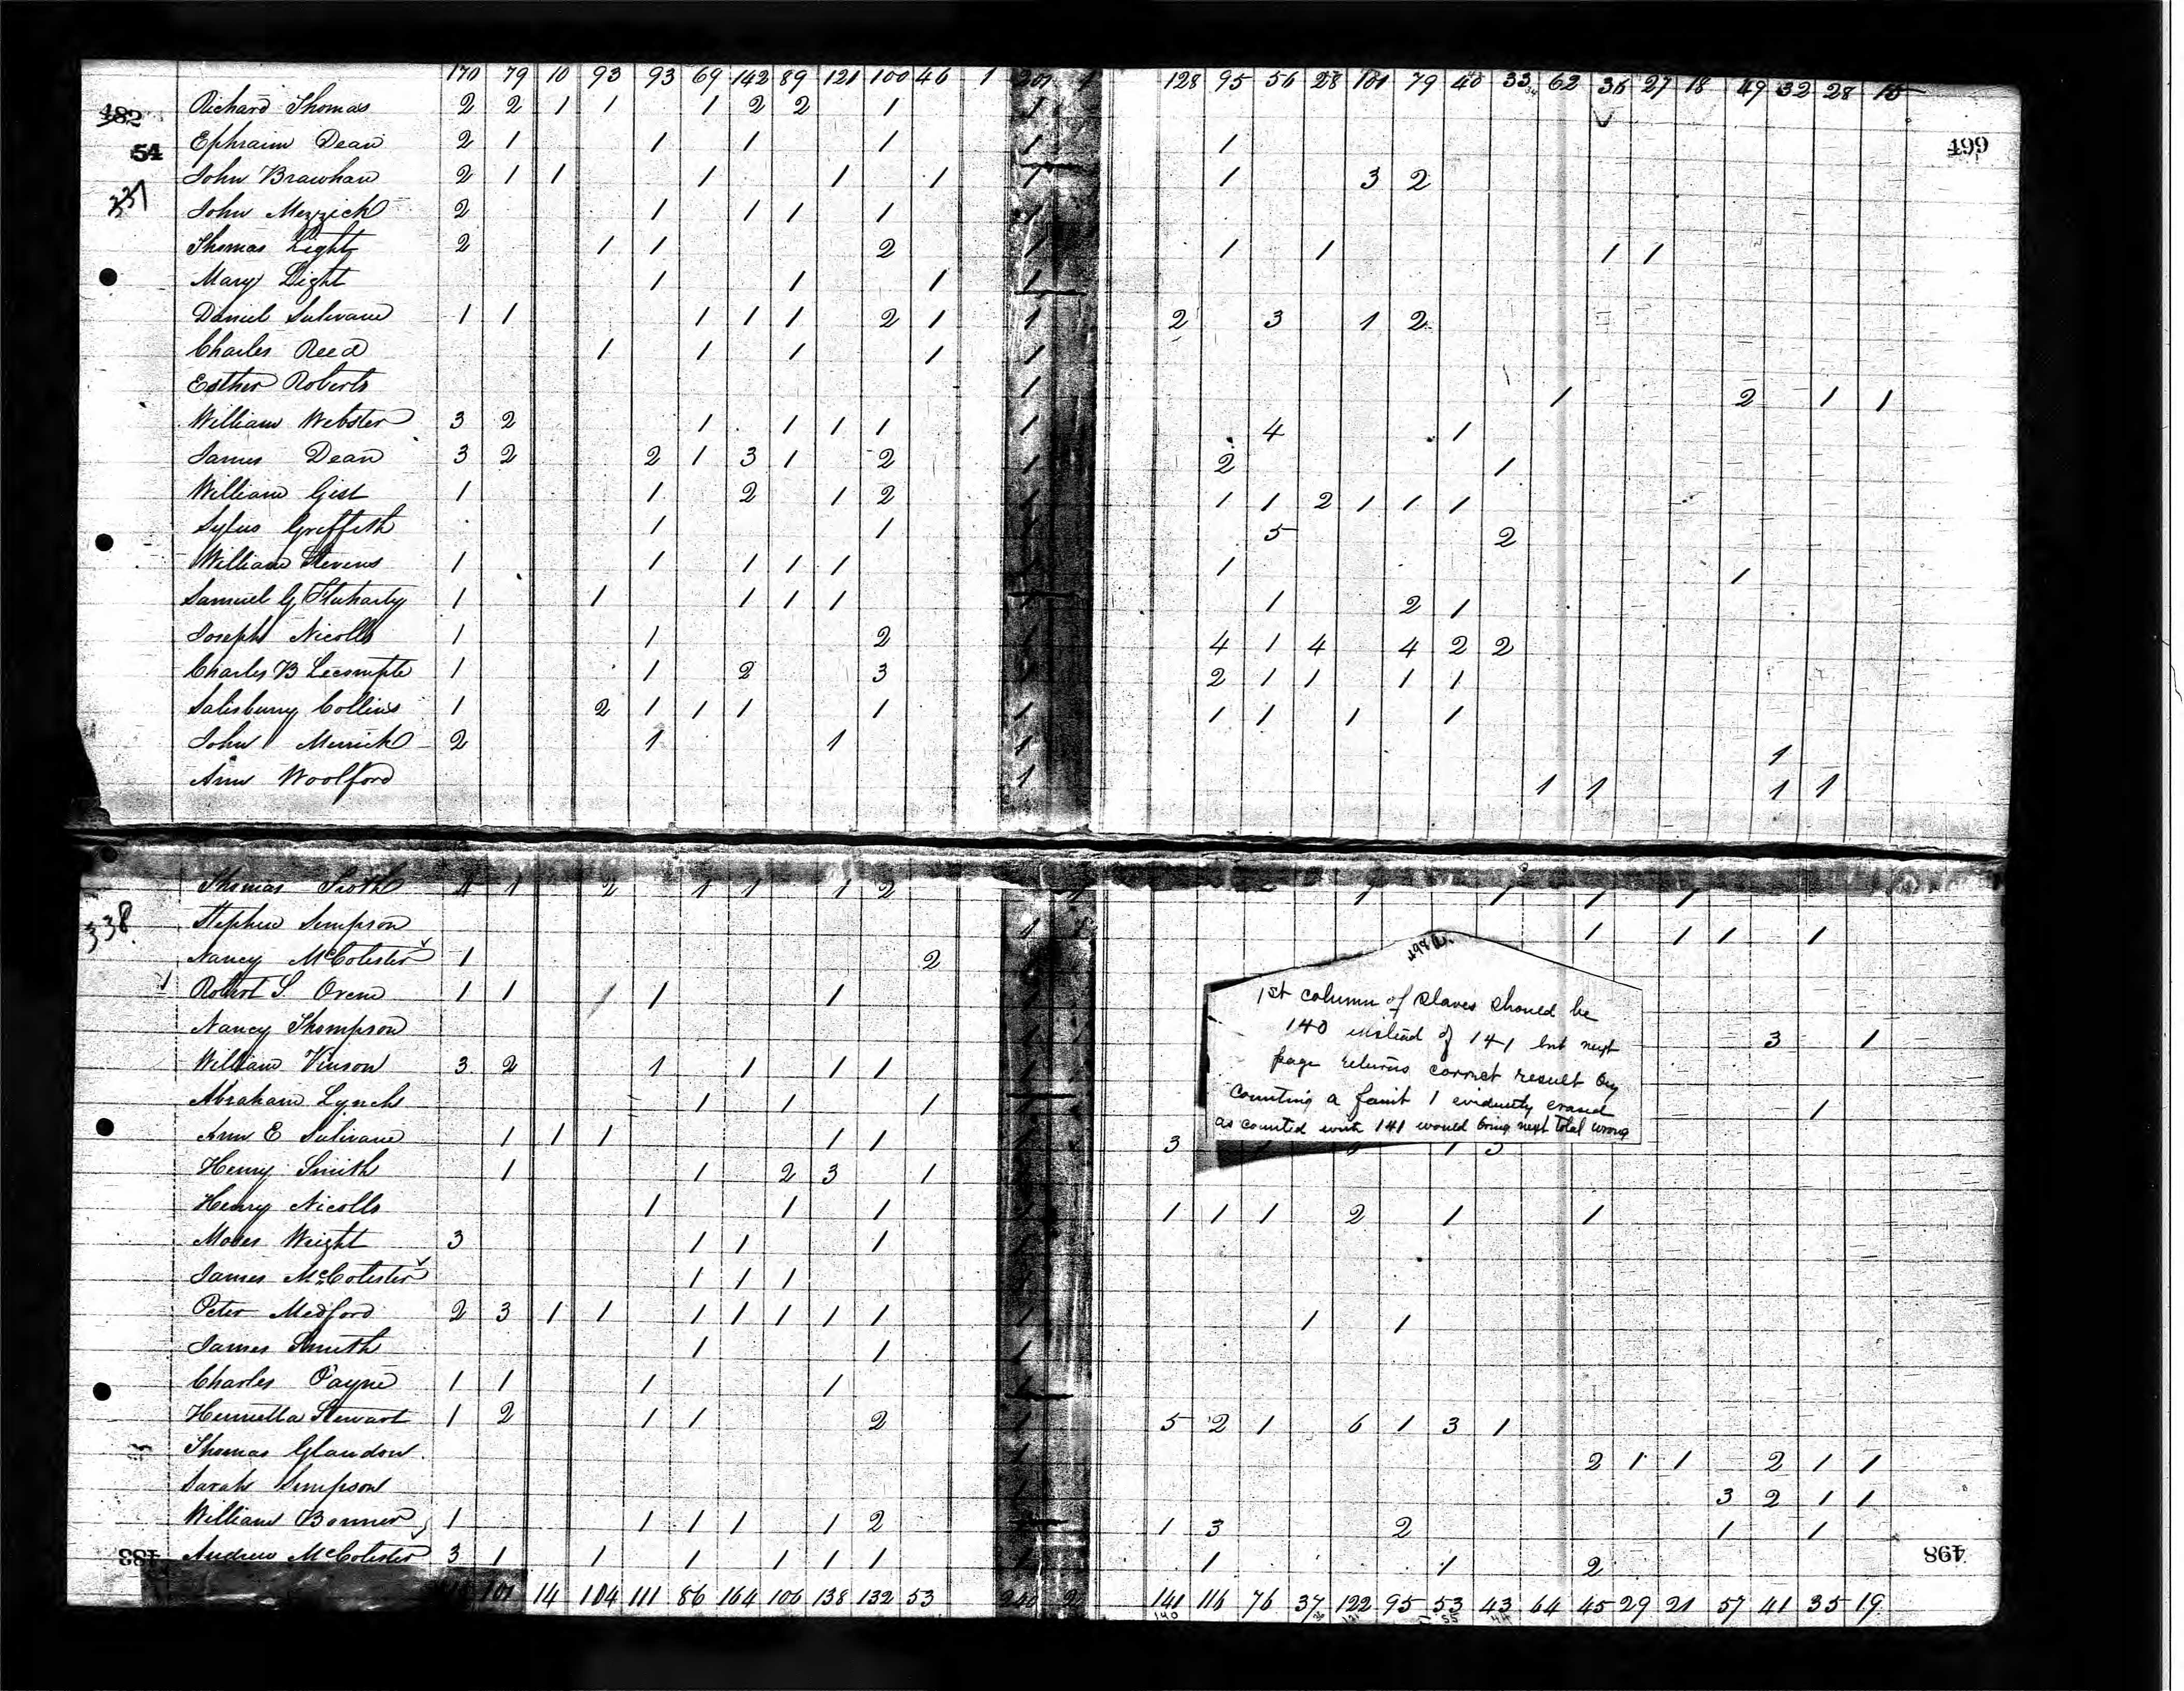 170 79 10 93 93 69 142 89 121 100 46 1 201 1 128 95 56 28 101 79 40 33 34 62 36 27 18 49 32 28 15
482
54
337
499
Richard Thomas 2 2 1 1 1 2 2 1 1
Ephraim Dean 2 1 1 1 1 1 1
John Brawhan 2 1 1 1 1 1 1 1 3 2
John Mezzick 2 1 1 1 1 1
Thomas Light 2 1 1 2 1 1 1 1 1
Mary Light 1 1 1 1
Daniel Sulivane 1 1 1 1 1 2 1 1 2 3 1 2
Charles Reed 1 1 1 1 1
Esther Roberts 1 1 2 1 1
William Webster 3 2 1 1 1 1 1 4 1
James Dean 3 2 2 1 3 1 2 1 2 1
William Gist 1 1 2 1 2 1 1 1 2 1 1 1
Sylus Griffith 1 1 1 5 2
William Stevens 1 1 1 1 1 1 1 1
Samuel G Fluharty 1 1 1 1 1 1 1 2 1
Joseph Nicolls 1 1 2 1 4 1 4 4 2 2
Charles B Lecompte 1 1 2 3 1 2 1 1 1 1
Salisbury Collins 1 2 1 1 1 1 1 1 1 1 1
John Merrick 2 1 1 1 1
Ann Woolford 1 1 1 1 1
338
Thomas 1 1 2 1 1 1 2 1 1 1 1 1
Stephen Simpson 1 1 1 1 1
Nancy McColister 1 2
Robert S. Orem 1 1 1 1 1
Nancy Thompson 1 1 3 1
William Vinson 3 2 1 1 1 1 1
Abraham Lynch 1 1 1 1 1
Ann E Sulivane 1 1 1 1 1 1 3 1 3
Henry Smith 1 1 2 3 1
Henry Nicolls 1 1 1 1 1 1 2 1 1
Moses Wright 3 1 1 1 1
James McColister 1 1 1
Peter Medford 2 3 1 1 1 1 1 1 1 1 1 1
James Smith 1 1 1
Charles Payne 1 1 1 1 1
Henrietta Stewart 1 2 1 1 2 1 5 2 1 6 1 3 1
Thomas Glandon 1 2 1 1 2 1 1
Sarah Simpson 1 3 2 1 1
William Bonner 1 1 1 1 1 2 1 3 2 1 1
Andrew McColister 3 1 1 1 1 1 1 1 1 1 2
483
498
101 14 104 111 86 164 106 138 132 53 2 141 116 76 37 122 95 53 43 64 45 29 21 57 41 35 19
140 121 55 44
498
1st column of slaves should be
140 instead of 141 but next
page returns correct result by
counting a faint 1 evidently erased
as counted with 141 would bring next total wrong